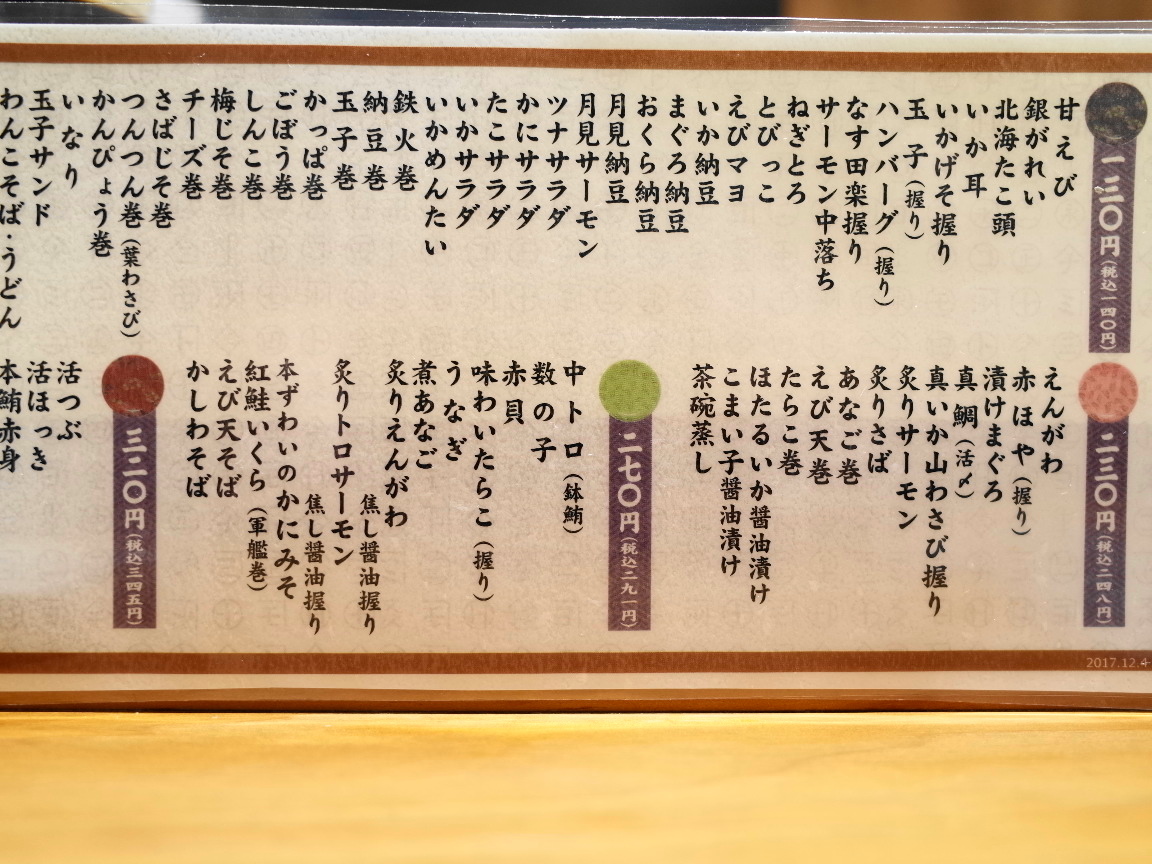 一三〇円(税込一四〇円)
甘えび
銀がれい
北海たこ頭
いか耳
いかげそ握り
玉子(握り)
ハンバーグ(握り)
なす田楽握り
サーモン中落ち
ねぎとろ
とびっこ
えびマヨ
いか納豆
まぐろ納豆
おくら納豆
月見納豆
月見サーモン
ツナサラダ
かにサラダ
たこサラダ
いかサラダ
いかめんたい
鉄火巻
納豆巻
玉子巻
かっぱ巻
ごぼう巻
しんこ巻
梅じそ巻
チーズ巻
さばじそ巻
つんつん巻(葉わさび)
かんぴょう巻
いなり
玉子サンド
わんこそば・うどん
二三〇円(税込二四八円)
えんがわ
赤ほや(握り)
漬けまぐろ
真鯛(活〆)
真いか山わさび握り
炙りサーモン
炙りさば
あなご巻
えび天巻
たらこ巻
ほたるいか醤油漬け
こまい子醤油漬け
茶碗蒸し
二七〇円(税込二九一円)
中トロ(鉢鮪)
数の子
赤貝
味わいたらこ(握り)
うなぎ
煮あなご
炙りえんがわ
焦し醤油握り
炙りトロサーモン
焦し醤油握り
本ずわいのかにみそ
紅鮭いくら(軍艦巻)
えび天そば
かしわそば
三二〇円(税込三四五円)
活つぶ
活ほっき
本鮪赤身
2017.12.4